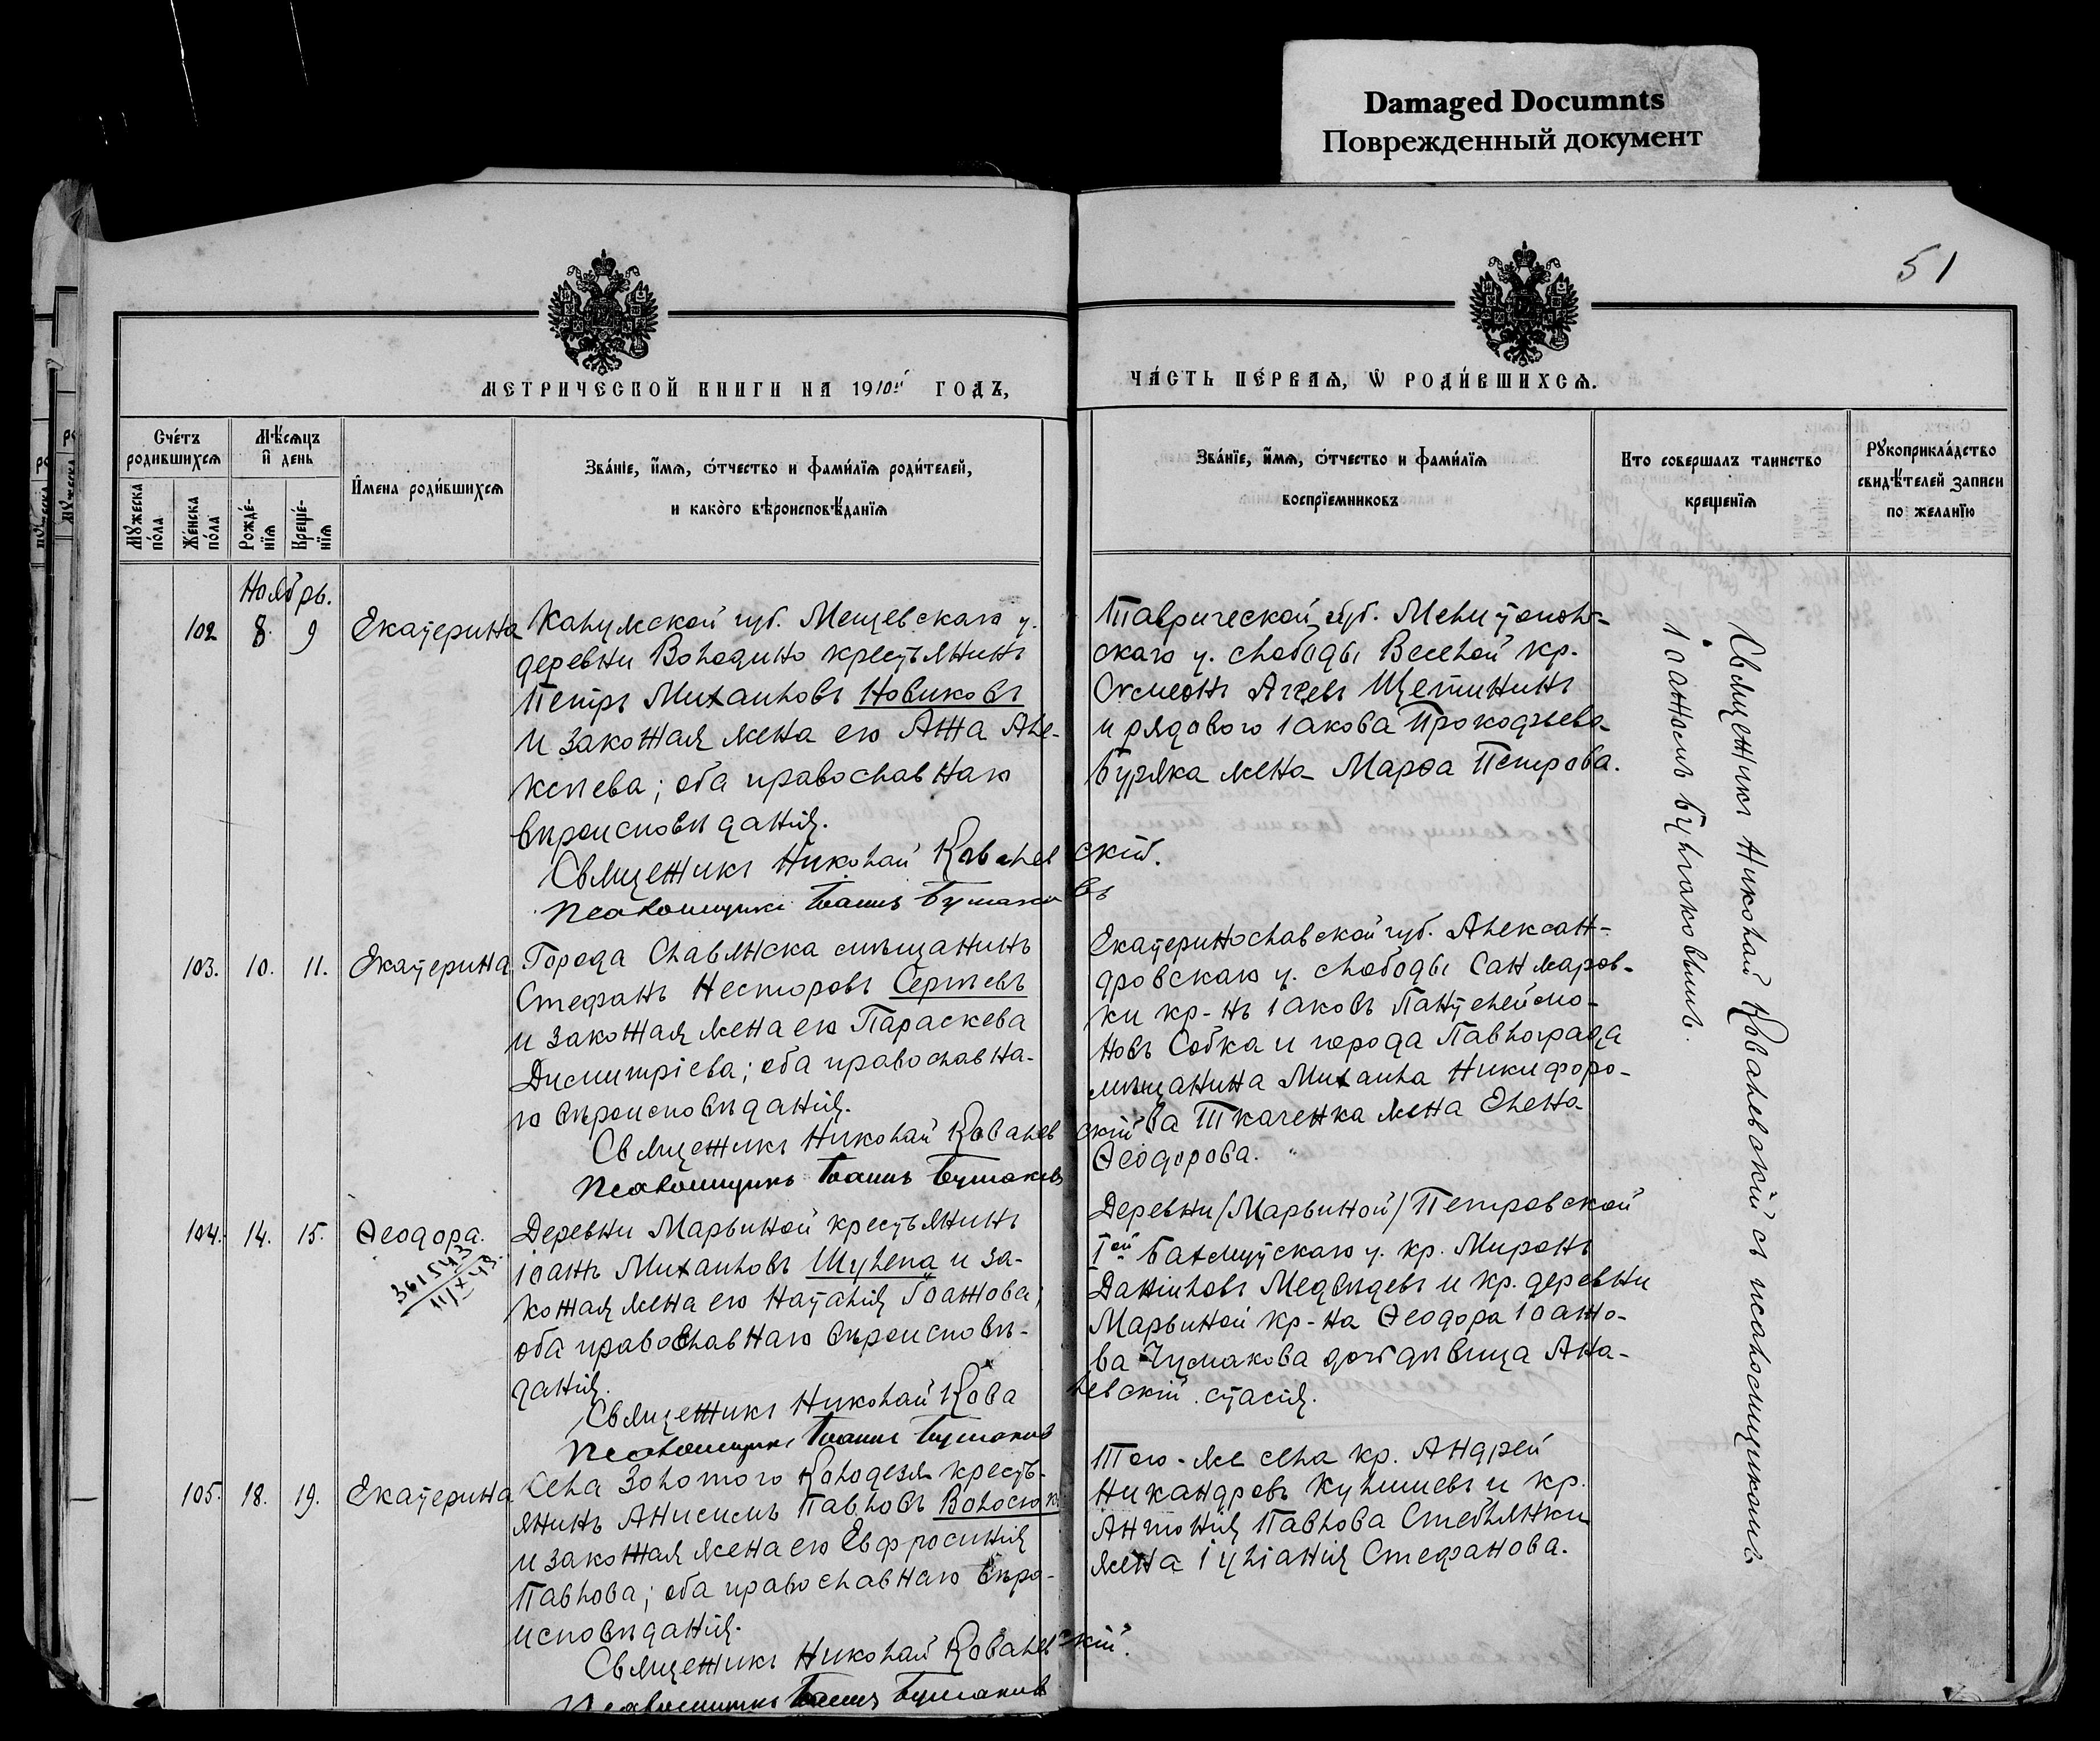 Damaged Documnts
Поврежденный документ
51
МЕТРИЧЕСКОЙ КНИГИ НА 1910й ГОДЪ,
ЧА́СТЬ ПЕ́РВАЯ, Ѡ РОДИ́ВШИХСЯ.
Сче́тъ родившихся
Мѣ́сяцъ и день
Мꙋжеска по́ла
Же́нска по́ла
Рожде́-нїя
Креще́-нїя
И҆́мена роди́вшихся
Зва́нїе, и҆́мя, о́тчество и фами́лїя роди́телей,
и како́го вѣроисповѣ́данїя
Зва́нїе, и҆́мя, о́тчество и фами́лїя
воспрїемниковъ
Кто совершалъ таинство
крещенїя
Рꙋкоприкла́дство
свидѣ́телей записи
по желанїю
Ноябрь.
102 8. 9 Екатерина
Калужской губ. Мещевскаго у.
деревни Володино крестьянинъ
Петръ Михаиловъ Новиковъ
и законная жена его Анна Але-
ксѣева; оба православнаго
вѣроисповѣданія.
Священникъ Николай Ковалевскій.
Псаломщикъ Іоаннъ Булгаковъ
Таврической губ. Мелитополь-
скаго у. слободы Веселой кр.
Сѵмеонъ Агеевъ Щетининъ
и рядового Іакова Прокофьева
Буряка жена Марѳа Петрова.
103. 10. 11. Екатерина
Города Славянска мѣщанинъ
Стефанъ Несторовъ Сергѣевъ
и законная жена его Параскева
Димитріева; оба православна-
го вѣроисповѣданія.
Священникъ Николай Ковалевскій
Псаломщикъ Іоаннъ Булгаковъ
Екатеринославской губ. Алексан-
дровскаго у. слободы Санжаров-
ки кр-нъ Іаковъ Пантелеймо-
новъ Собка и города Павлограда
мѣщанина Михаила Никифоро-
ва Ткаченка жена Елена
Ѳеодорова.
104. 14. 15. Ѳеодора.
361543
11/X 43.
Деревни Марьиной крестьянинъ
Іоаннъ Михаиловъ Шулепа и за-
конная жена его Наталія Іоаннова;
оба православнаго вѣроисповѣ-
данія.
Священникъ Николай Ковалевскій
Псаломщикъ Іоаннъ Булгаковъ
Деревни /Марьиной/ Петровской
Iой Бахмутскаго у. кр. Миронъ
Даніиловъ Медвѣдевъ и кр. деревни
Марьиной кр-на Ѳеодора Іоанно-
ва Чумакова дочь дѣвица Ана-
стасія.
105. 18. 19. Екатерина
Села Золотого Колодезя кресть-
янинъ Анисимъ Павловъ Волосюкъ
и законная жена его Евфросинія
Павлова; оба православнаго вѣро-
исповѣданія.
Священникъ Николай Ковалевскій.
Псаломщикъ Іоаннъ Булгаковъ
Того-же села кр. Андрей
Никандровъ Кулишевъ и кр.
Антонія Павлова Стеблянки
жена Іуліанія Стефанова.
Священникъ Николай Ковалевскій съ псаломщикомъ
Іоанномъ Булгаковымъ.